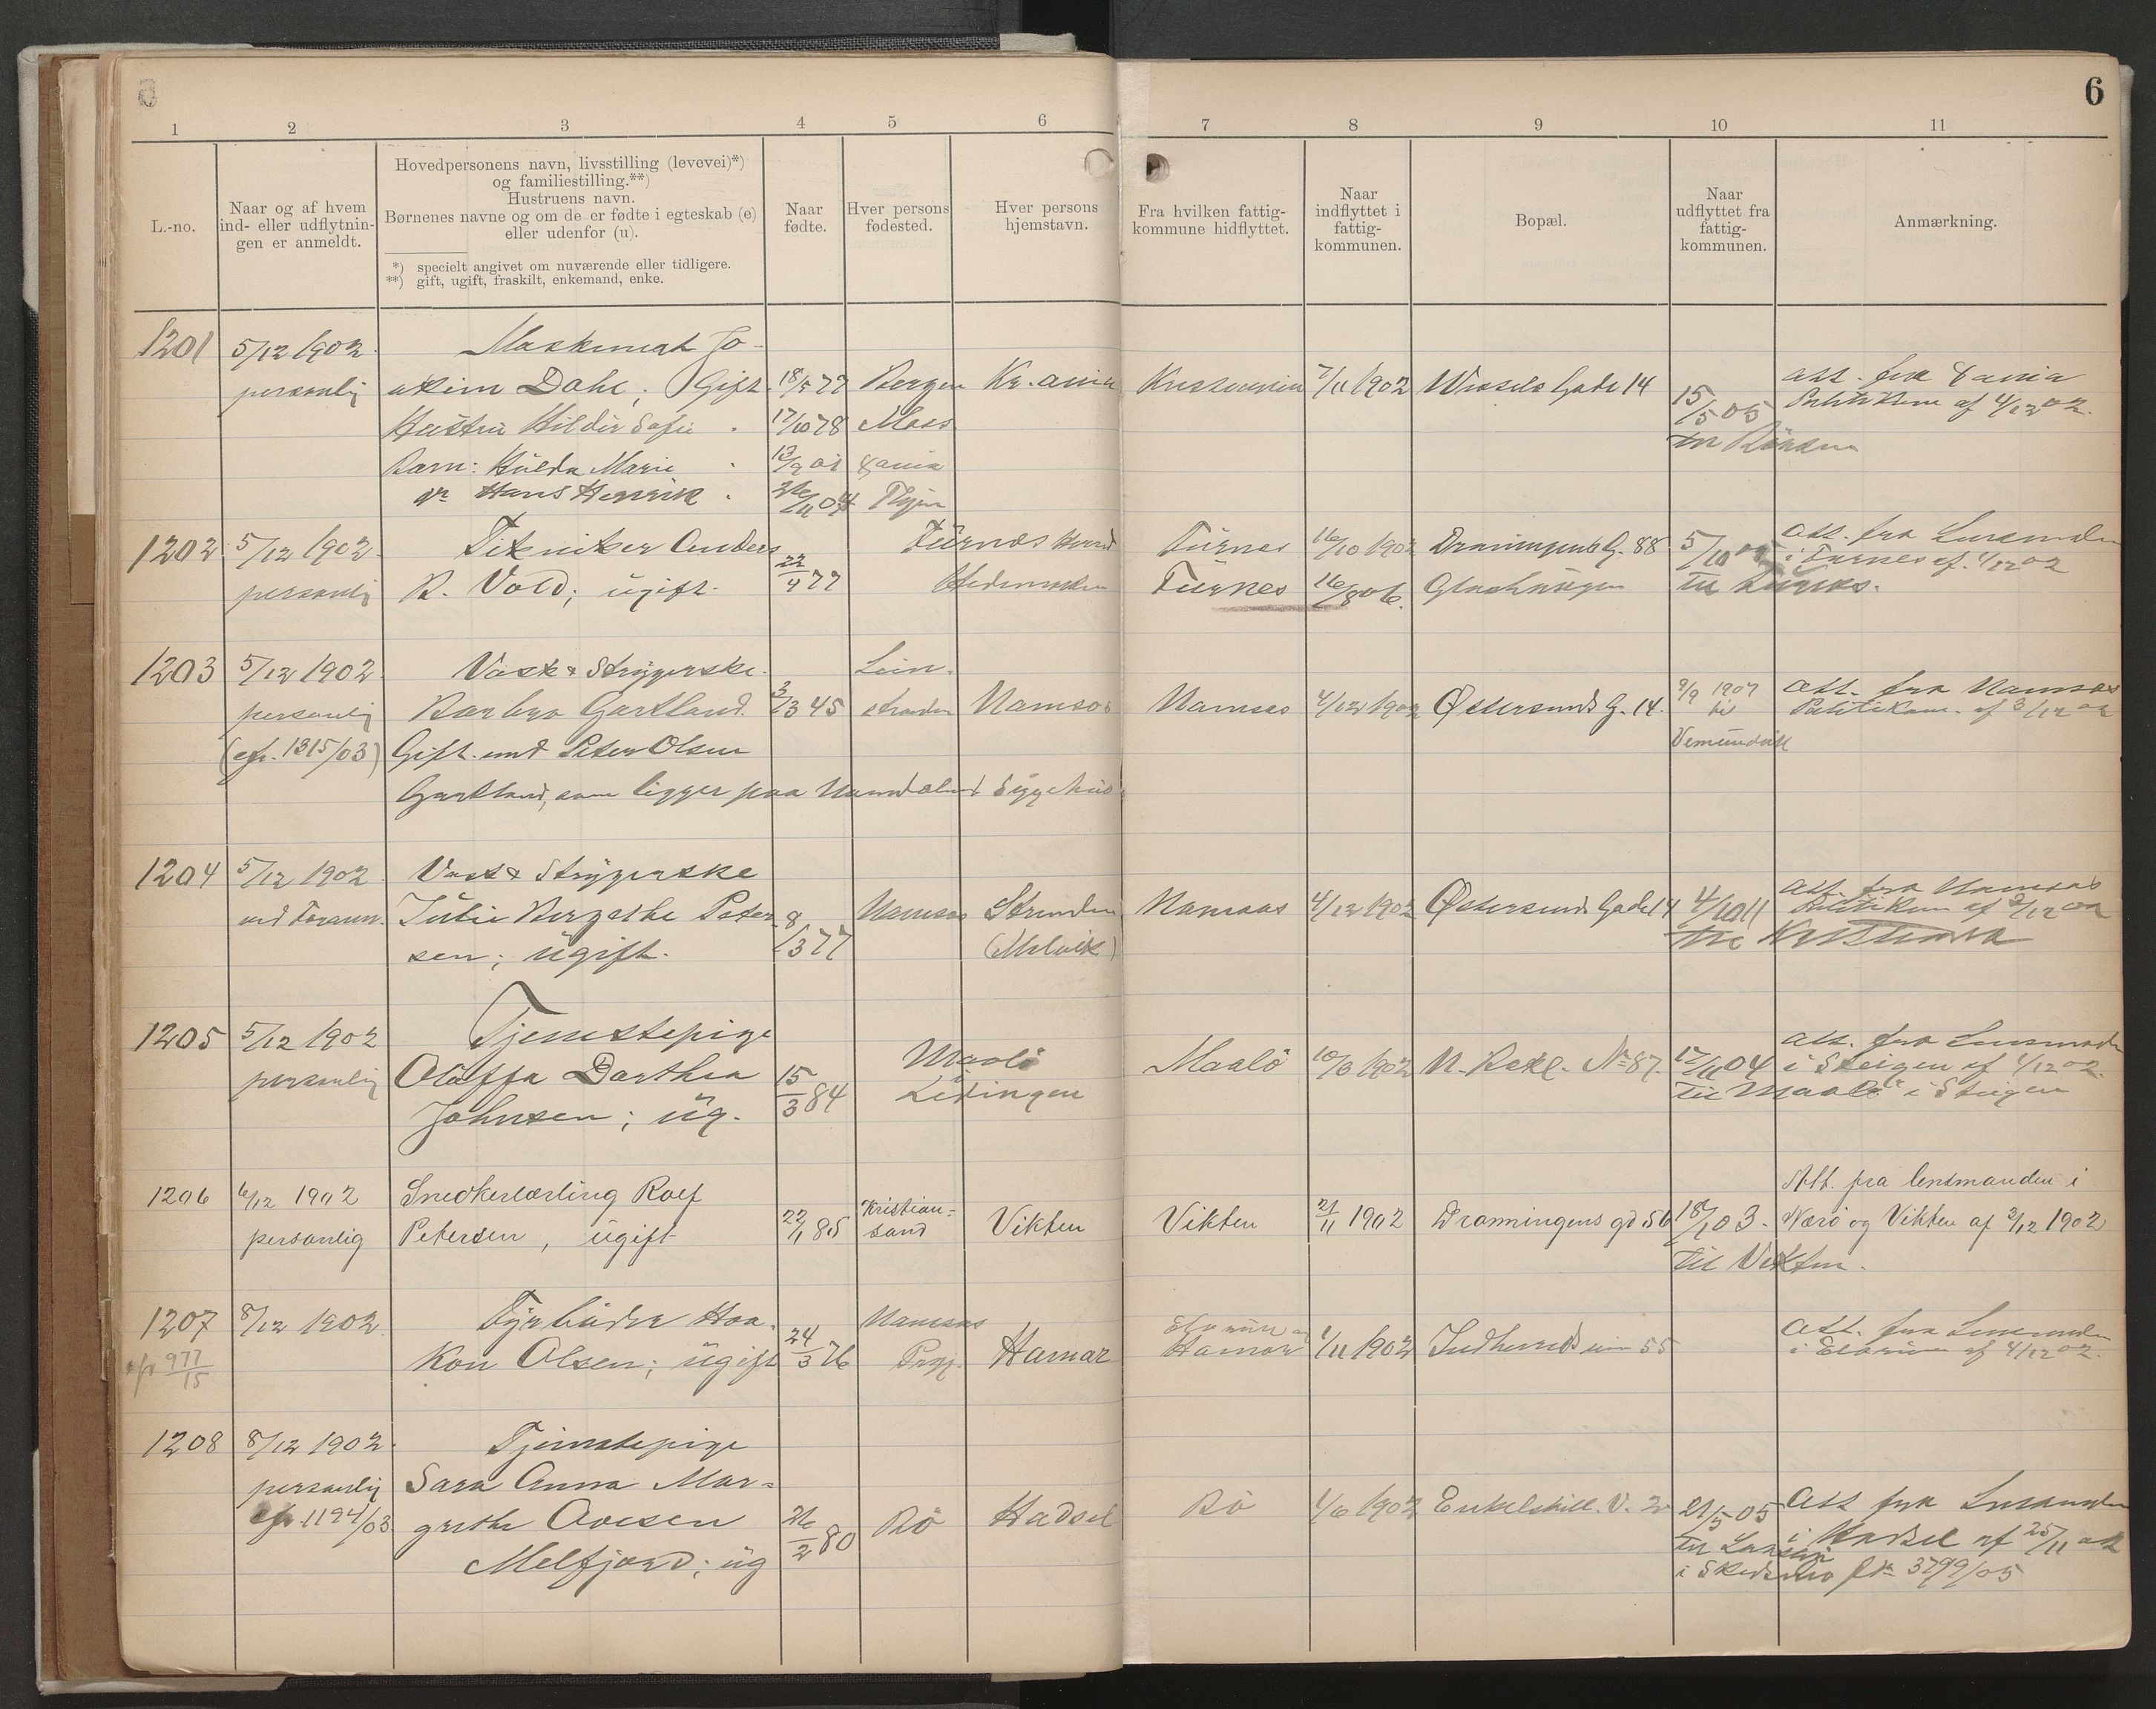 6
1 2 3 4 5 6 7 8 9 10 11
L.-no.
Naar og af hvem
ind- eller udflytnin-
gen er anmeldt.
Hovedpersonens navn, livsstilling (levevei)*)
og familiestilling.**)
Hustruens navn.
Børnenes navne og om de er fødte i egteskab (e)
eller udenfor (u).
*) specielt angivet om nuværende eller tidligere.
**) gift, ugift, fraskilt, enkemand, enke.
Naar
fødte.
Hver persons
fødested.
Hver persons
hjemstavn.
Fra hvilken fattig-
kommune hidflyttet.
Naar
indflyttet i
fattig-
kommunen.
Bopæl.
Naar
udflyttet fra
fattig-
kommunen.
Anmærkning.
1201 5/12 1902. Jo-
personlig akim Dahl; Gift. 18/5 77 Bergen Kr.ania 7/11 1902 Wessels Gade 14 att. fra
15/5 05 af 4/12 02.
Hustru Hilda Sofie . 17/10 78 Moss
Barn: Hulda Marie . 13/9 01
Hans Henrik . 26/11 04
1202 5/12 1902. Anders Furnes Furnes 16/10 1902 Dronningens G. 88 5/10 att. fra Lensmanden
i Furnes af 4/12 02
personlig B. Vold; ugift. 22/4 77 Hedemarken Furnes 16/8 06. til Furnes.
1203 5/12 1902. Vask & Strygerske. Lein-
personlig Gartland. 3/3 45 stranden Namsos Namsos 4/12 1902 Østersunds G. 14. 9/9 1907 Att. fra Namsos
til Politikam. af 3/12 02
Vemundvik
(cfr. 1315/03) Gift med Peter Olsen
Gartland, som ligger paa Namdalens Sygehus
1204 5/12 1902. Vask & Strygerske
ved Julie Bergethe Peter- 8/3 77 Namsos Strinden Namsos 4/12 1902 Østersunds Gade 14 4/10 11 Att. fra Namsos
Politikam af 3/12 02
sen; ugift. (Malvik) til
1205 5/12 1902 Tjenestepige
personlig Olaffa Darthea 15/3 84 Maalö Maalö 1902 N. Bakl. No 87. 17/11 04 att. fra Lensmanden
i Steigen af 4/12 02.
Johnsen; ug. Lödingen til Maalö i Steigen
1206 6/12 1902 Snedkerlærling Rolf Kristian- Att. fra lensmanden i
personlig Petersen, ugift 22/1 85 sand Vikten Vikten 21/11 1902 Dronningens gd 56 18/ 03. Nærö og Vikten af 3/12 1902
til Vikten.
1207 8/12 1902. Fyrböder Haa- Namsos Elverum og
cfr 977/15 kon Olsen; ugift 24/3 76 Hamar Hamar 1/11 1902 55 Att. fra Lensmanden
i Elverum af 4/12 02.
1208 8/12 1902. Tjenestepige
personlig Sara Anna Mar-
cfr. 1194/03. grethe Ovesen 26/2 80 Bö Hadsel Bö 1/6 1902 Enkeltskill. V. 21/5 05 Att fra Lensmanden
Melfjord; ug til i Hadsel af 25/11 02
i Skedsmo 3799/05